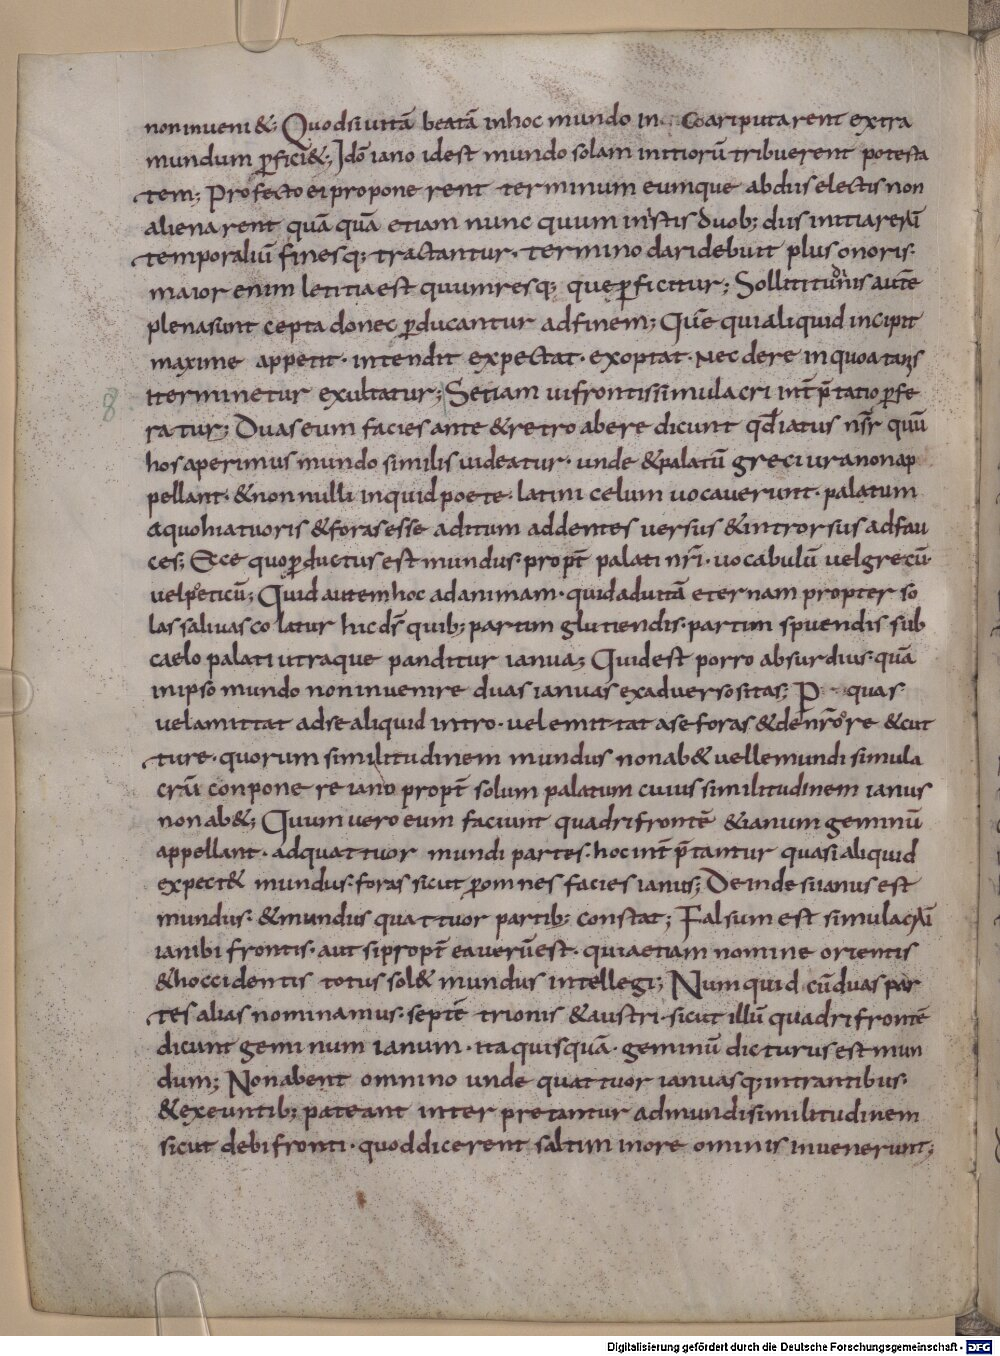 non inueni&; Quodsi uitā beatā inhoc mundo in coari putarent extra
mundum ꝑfici&; Idō iano idest mundo solam initiorū tribuerent potesta
tem; Profecto ei proponerent terminum eumque abduselectis non
alienarent quā quā etiam nunc quum in istis duob; diis initiarerū
temporaliū finesq; tractantur· termino daridebuit plus onoris·
maior enim letitia est quum resq; que ꝑficitur; Sollicitudinis autē
plena sunt cepta donec ꝑducantur adfinem; Quē qui aliquid incipit
maxime appetit· intendit expectat· exoptat· Nec dere inquoatais
iterminetur exultatur; Setiam uifrontis simulacri int̄ p̄tatio ꝑfe
ratur; Duas eum facies ante & retro abere dicunt qđ iatus nr̄ quū
hos aperimus mundo similis uideatur· unde & palatū greci uranon ap
pellant· & non nulli inquid poete· latini celum uocauerunt· palatum
a quo hiatu oris & foras esse aditum ad dentes uersus & introrsus ad fau
ces; Ecce quo ꝑductus est mundus· propt̄ palati nr̄i· uocabulū uel grecū·
uel poeticū; Quid autem hoc ad animam· quid ad uitā eternam propter so
las saliuas colatur hic ds̄ quib; partim glutiendis· partim spuendis sub
caelo palati utraque panditur ianua; Quid est porro absurdius· quā
in ipso mundo non inuenire duas ianuas ex aduerso sitas; P quas·
uel amittat ad se aliquid intro· uel emittat a se foras & de nr̄o ore & cut
ture· quorum similitudinem mundus non ab& uelle mundi simula
crū conponere iano propt̄ solum palatum cuius similitudinem ianus
non ab&; Quum uero eum faciunt quadrifrontē & ianum geminū
appellant· ad quattuor mundi partes· hoc int̄ p̄tantur quasi aliquid
expect& mundus· foras sicut ꝑ omnes facies ianus; Deinde si ianus est
mundus· & mundus quattuor partib; constat; Falsum est simulacrū
iani bifrontis· aut si propt̄ ea uerū est· quia etiam nomine orientis
& hoccidentis totus sol& mundus intellegi; Numquid cū duas par
tes alias nominamus· septē trionis & austri· sicut illū quadrifrontē
dicunt geminum ianum· ita quisquā· geminū dicturus est mun
dum; Non abent omnino unde quattuor ianuas q; intrantibus·
& exeuntib; pateant interpretantur ad mundi similitudinem
sicut de bifronti· quod dicerent saltim in ore ominis inuenerunt;
8·
Digitalisierung gefördert durch die Deutsche Forschungsgemeinschaft - DFG